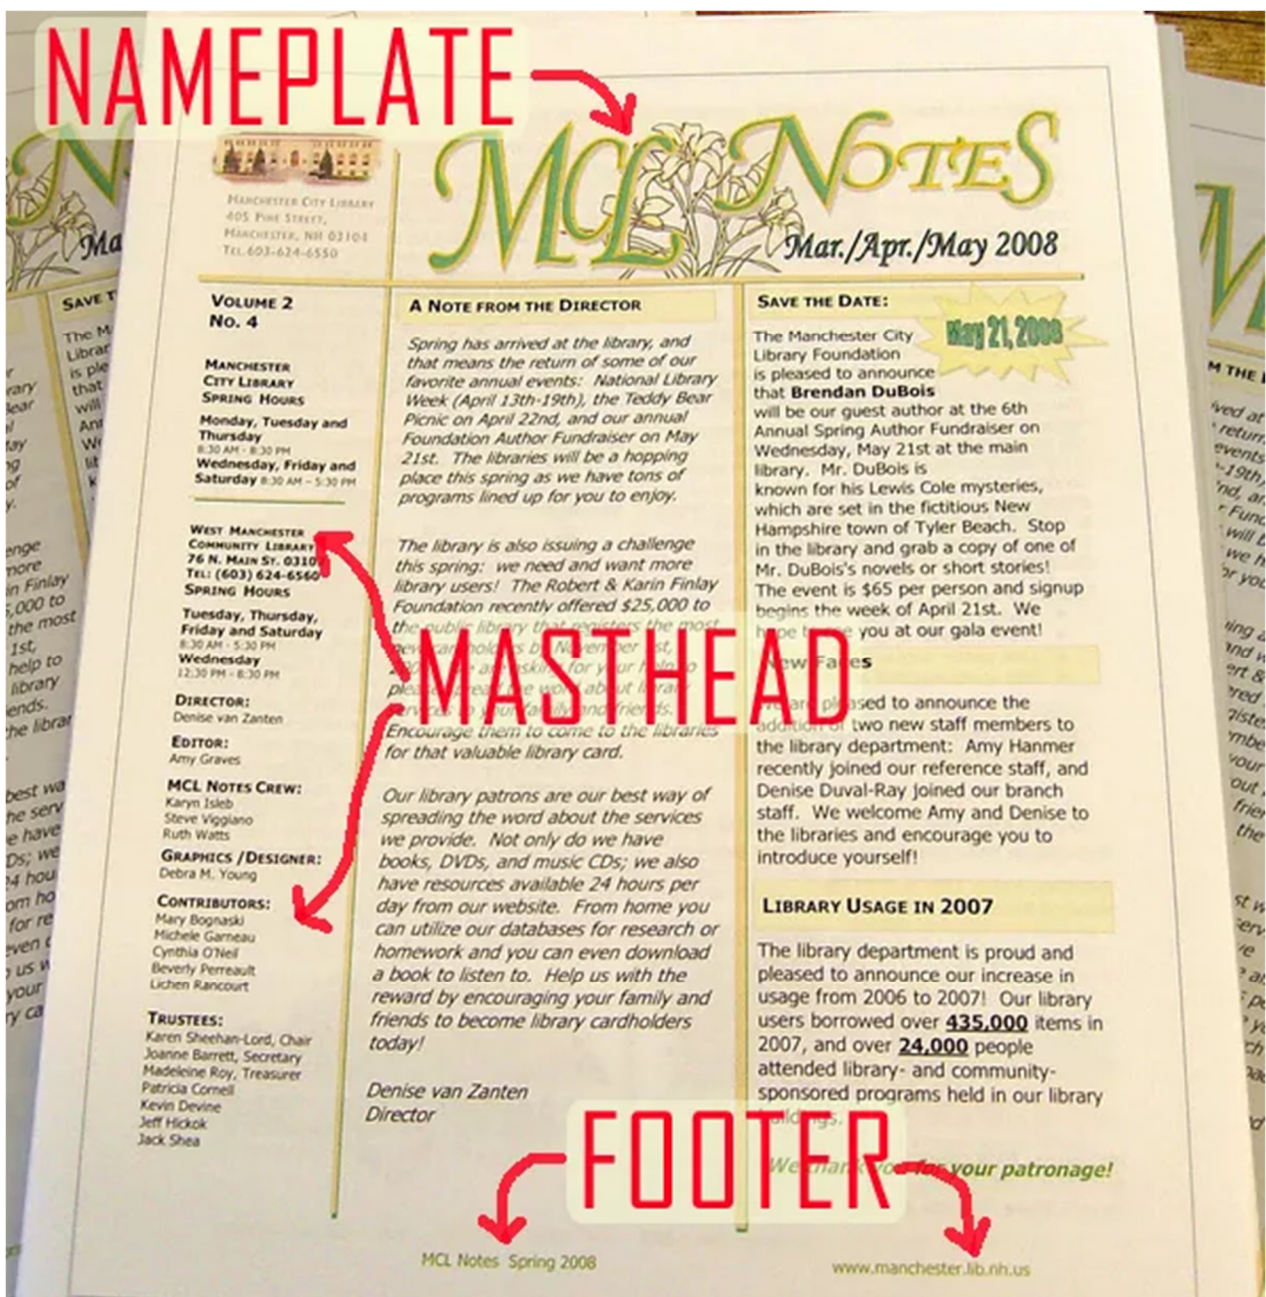 NAMEPLATE
MCL NOTES
Mar./Apr./May 2008
MANCHESTER CITY LIBRARY
405 PINE STREET,
MANCHESTER, NH 03104
TEL.603-624-6550
VOLUME 2
No. 4
MANCHESTER
CITY LIBRARY
SPRING HOURS
Monday, Tuesday and
Thursday
8:30 AM - 8:30 PM
Wednesday, Friday and
Saturday 8:30 AM – 5:30 PM
WEST MANCHESTER
COMMUNITY LIBRARY
76 N. MAIN ST. 0310
TEL: (603) 624-6560
SPRING HOURS
Tuesday, Thursday,
Friday and Saturday
8:30 AM - 5:30 PM
Wednesday
12:30 PM - 8:30 PM
DIRECTOR:
Denise van Zanten
EDITOR:
Amy Graves
MCL NOTES CREW:
Karyn Isleb
Steve Viggiano
Ruth Watts
GRAPHICS /DESIGNER:
Debra M. Young
CONTRIBUTORS:
Mary Bognaski
Michele Garneau
Cynthia O'Neil
Beverly Perreault
Lichen Rancourt
TRUSTEES:
Karen Sheehan-Lord, Chair
Joanne Barrett, Secretary
Madeleine Roy, Treasurer
Patricia Cornell
Kevin Devine
Jeff Hickok
Jack Shea
A NOTE FROM THE DIRECTOR
Spring has arrived at the library, and
that means the return of some of our
favorite annual events: National Library
Week (April 13th-19th), the Teddy Bear
Picnic on April 22nd, and our annual
Foundation Author Fundraiser on May
21st. The libraries will be a hopping
place this spring as we have tons of
programs lined up for you to enjoy.
The library is also issuing a challenge
this spring: we need and want more
library users! The Robert & Karin Finlay
Foundation recently offered $25,000 to
the public library that registers the most
new cardholders by November 1st,
are asking for your help to
please spread the word about library
services to your family and friends.
Encourage them to come to the libraries
for that valuable library card.
MASTHEAD
Our library patrons are our best way of
spreading the word about the services
we provide. Not only do we have
books, DVDs, and music CDs; we also
have resources available 24 hours per
day from our website. From home you
can utilize our databases for research or
homework and you can even download
a book to listen to. Help us with the
reward by encouraging your family and
friends to become library cardholders
today!
Denise van Zanten
Director
SAVE THE DATE:
May 21, 2008
The Manchester City
Library Foundation
is pleased to announce
that Brendan DuBois
will be our guest author at the 6th
Annual Spring Author Fundraiser on
Wednesday, May 21st at the main
library. Mr. DuBois is
known for his Lewis Cole mysteries,
which are set in the fictitious New
Hampshire town of Tyler Beach. Stop
in the library and grab a copy of one of
Mr. DuBois's novels or short stories!
The event is $65 per person and signup
begins the week of April 21st. We
hope to see you at our gala event!
New Faces
We are pleased to announce the
addition of two new staff members to
the library department: Amy Hanmer
recently joined our reference staff, and
Denise Duval-Ray joined our branch
staff. We welcome Amy and Denise to
the libraries and encourage you to
introduce yourself!
LIBRARY USAGE IN 2007
The library department is proud and
pleased to announce our increase in
usage from 2006 to 2007! Our library
users borrowed over 435,000 items in
2007, and over 24,000 people
attended library- and community-
sponsored programs held in our library
buildings.
We thank you for your patronage!
FOOTER
MCL Notes Spring 2008
www.manchester.lib.nh.us